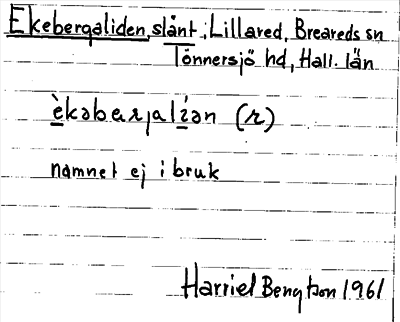 Ekebergaliden, slänt; Lillared, Breareds sn
Tönnersjö hd, Hall. län
èkəbærjalíən (r)
namnet ej i bruk
Harriel Bengtson 1961